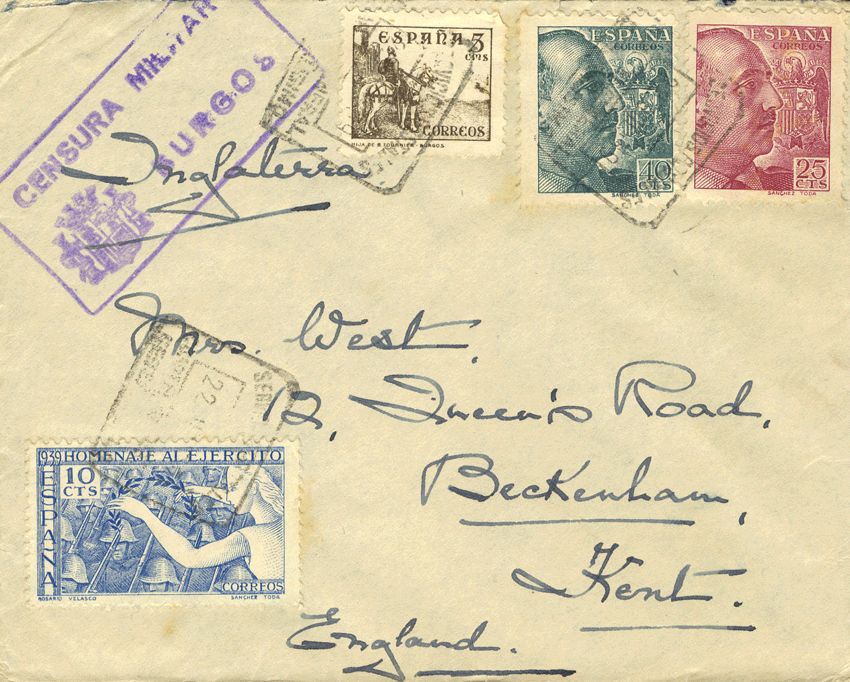 CENSURA MILITAR
BURGOS
ESPAÑA 5 cms
CORREOS
HIJA DE B. FOURNIER - BURGOS
ESPAÑA
CORREOS
40 CTS
SANCHEZ TODA
ESPAÑA
CORREOS
25 CTS
SANCHEZ TODA
Inglaterra
Mrs. West,
12, Queen's Road,
Beckenham,
Kent.
England.
22
1939 HOMENAJE AL EJERCITO
10 CTS
ESPAÑA
CORREOS
ROSARIO VELASCO SANCHEZ TODA